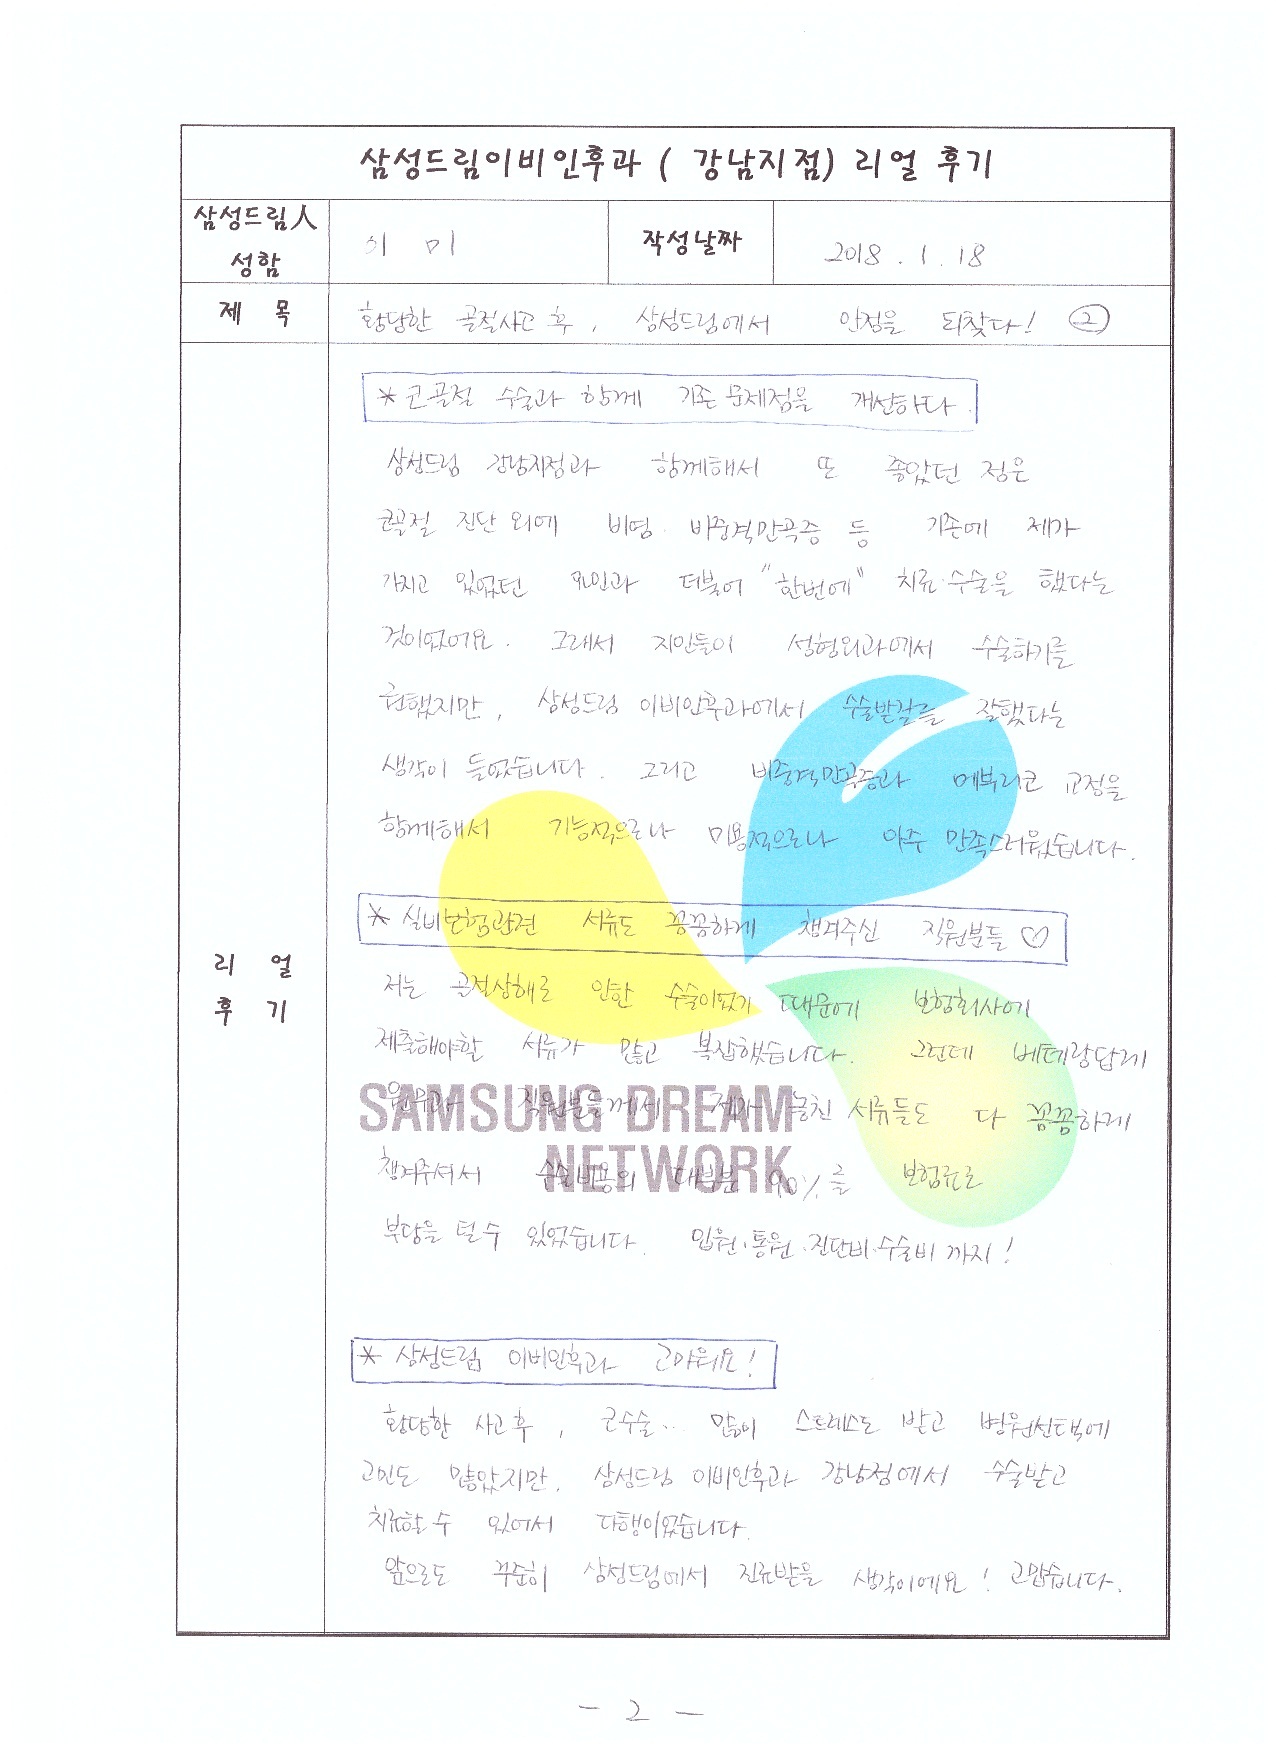 삼성드림이비인후과 ( 강남지점) 리얼 후기
삼성드림人
성함
이 미
작성날짜
2018 . 1 . 18
제 목
황당한 골절사고 후 , 삼성드림에서 안정을 되찾다! ②
리 얼
후 기
* 코골절 수술과 함께 기존 문제점을 개선하다.
삼성드림 강남지점과 함께해서 또 좋았던 점은
코골절 진단 외에 비염 · 비중격만곡증 등 기존에 제가
가지고 있었던 요인과 더불어 "한번에" 치료·수술을 했다는
것이었어요. 그래서 지인들이 성형외과에서 수술하기를
권했지만, 삼성드림 이비인후과에서 수술받길 잘했다는
생각이 들었습니다. 그리고 비중격만곡증과 메부리코 교정을
함께해서 기능적으로나 미용적으로나 아주 만족스러웠습니다.
* 실비보험관련 서류도 꼼꼼하게 챙겨주신 직원분들 ♡
저는 골절상해로 인한 수술이었기 때문에 보험회사에
제출해야할 서류가 많고 복잡했습니다. 그런데 베테랑답게
원무과 직원분들께서 제가 놓친 서류들도 다 꼼꼼하게
챙겨주셔서 수술비용의 대부분 90%를 보험료로
부담을 덜 수 있었습니다. 입원·통원·진단비·수술비 까지!
SAMSUNG DREAM
NETWORK
* 삼성드림 이비인후과 고마워요!
황당한 사고 후 , 코수술.. 많이 스트레스도 받고 병원선택에
고민도 많았지만, 삼성드림 이비인후과 강남점에서 수술받고
치료할 수 있어서 다행이었습니다.
앞으로도 꾸준히 삼성드림에서 진료받을 생각이에요! 고맙습니다.
- 2 -